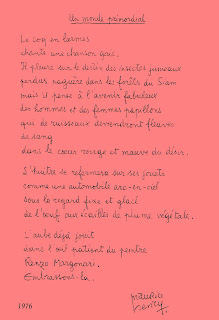 Un monde primordial
Le coq en larmes
chante une chanson gaie.
Il pleure sur le destin des insectes jumeaux
perdus naguère dans les forêts du Siam
mais il pense à l'avenir fabuleux
des hommes et des femmes papillons
que de ruisseaux deviendront fleuves
de sang
dans le cœur rouge et mauve du désir.
L'huître se refermera sur ses jouets
comme une automobile arc-en-ciel
sous le regard fixe et glacé
de l'œuf aux écailles de plume végétale.
L'aube déjà jouit
dans l'œil patient du peintre
Renzo Margonari.
Embrassons-la.
1976
Maurice
Henry.